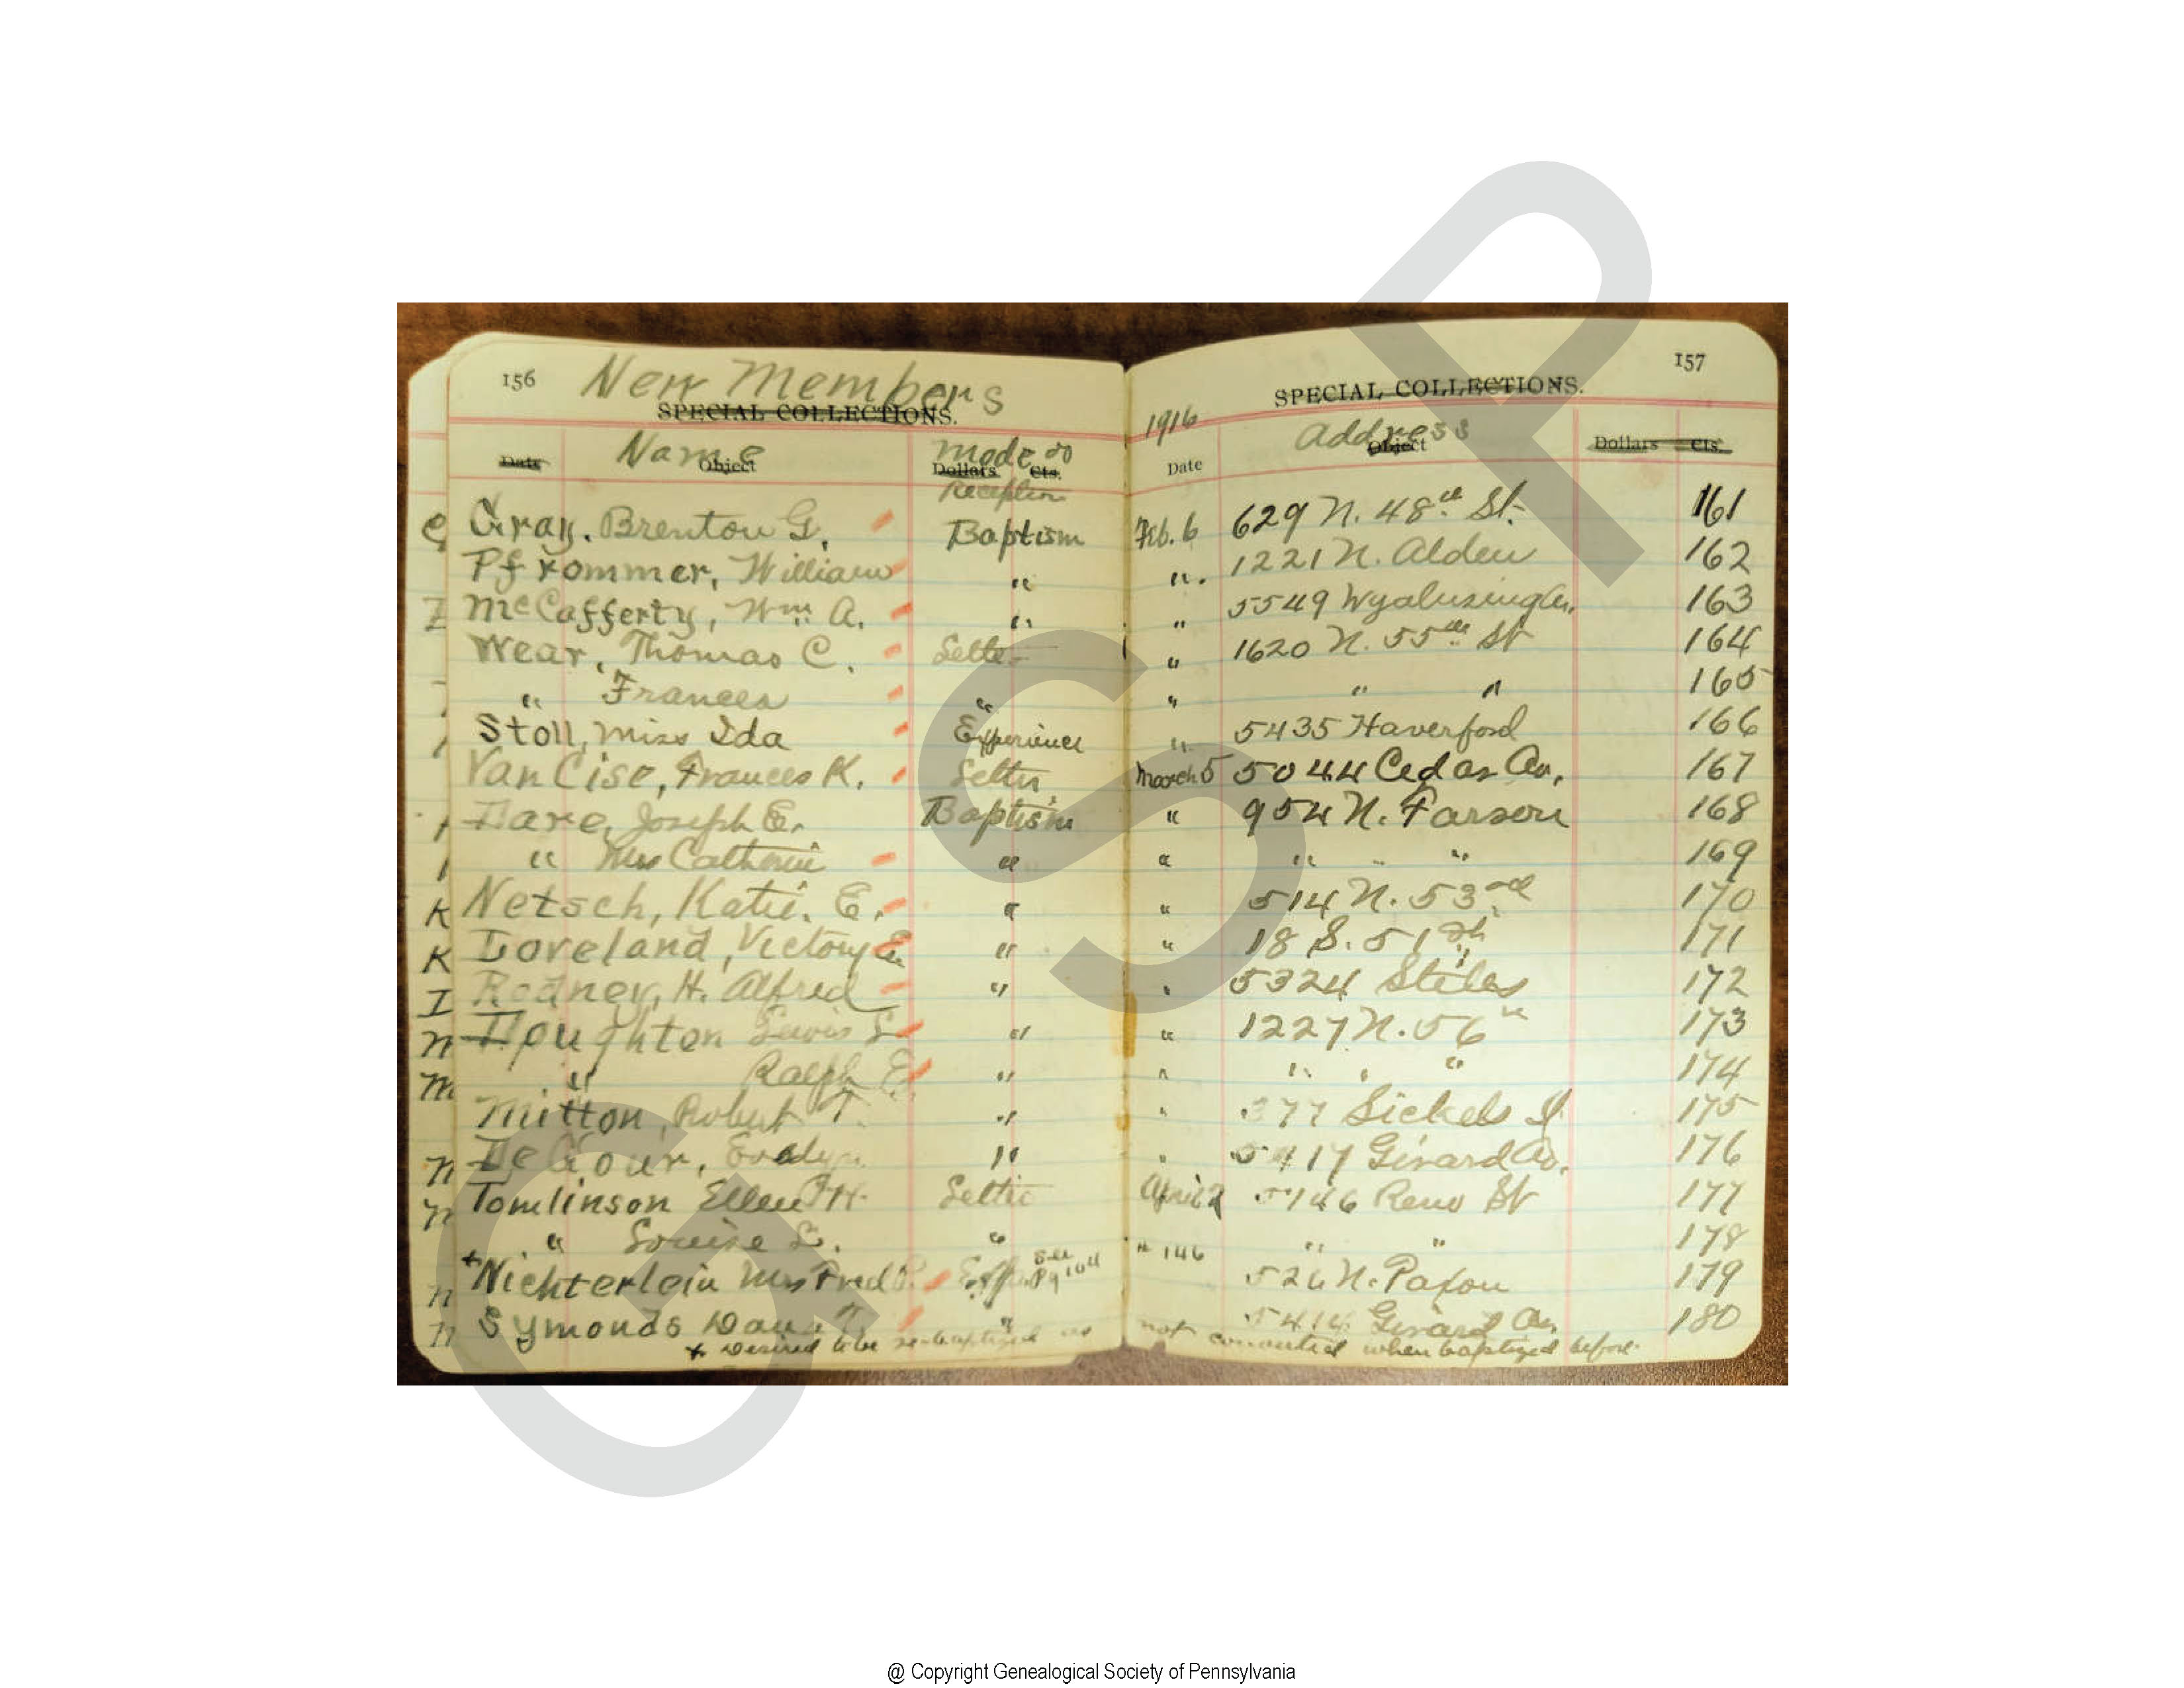 156 New Members
SPECIAL COLLECTIONS.
Date Name Object Mode of Dollars Cts. Reception
Gray. Brenton G. Baptism
Pfrommer, William "
McCafferty, Wm A. "
Wear, Thomas C. Letter
" Frances "
Stoll, Miss Ida Experience
Van Cise, Frances K. Letter
Dare, Joseph E. Baptism
" Mrs Catherine "
K Netsch, Katie. E. "
K Loveland, Victory "
I Rodney, H. Alfred "
n Houghton Lewis S. "
m " Ralph E. "
Mitton, Robert T. "
n Evelyn "
n Tomlinson Ellen H. Letter
" Louise S. "
n + Nichterlein Mrs Fred See Pg
n Symonds "
+ Desired to be re-baptized as
157
SPECIAL COLLECTIONS.
1916
Date Address Object Dollars Cts.
Feb. 6 629 N. 48th St. 161
". 1221 N. Alden 162
" 5549 Wyalusing Av. 163
" 1620 N. 55th St 164
" " " 165
" 5435 Haverford 166
March 5 5044 Cedar Av. 167
" 954 N. Farson 168
" " " " 169
" 514 N. 53rd 170
" 18 S. 51st 171
" 5324 Stiles 172
" 1227 N. 56th 173
" " " " 174
" Sickels St 175
" Girard Av. 176
April 2 5146 Reno St 177
" 146 " " 178
526 N. Paxon 179
Girard Av. 180
not converted when baptized before.
GSP
@ Copyright Genealogical Society of Pennsylvania